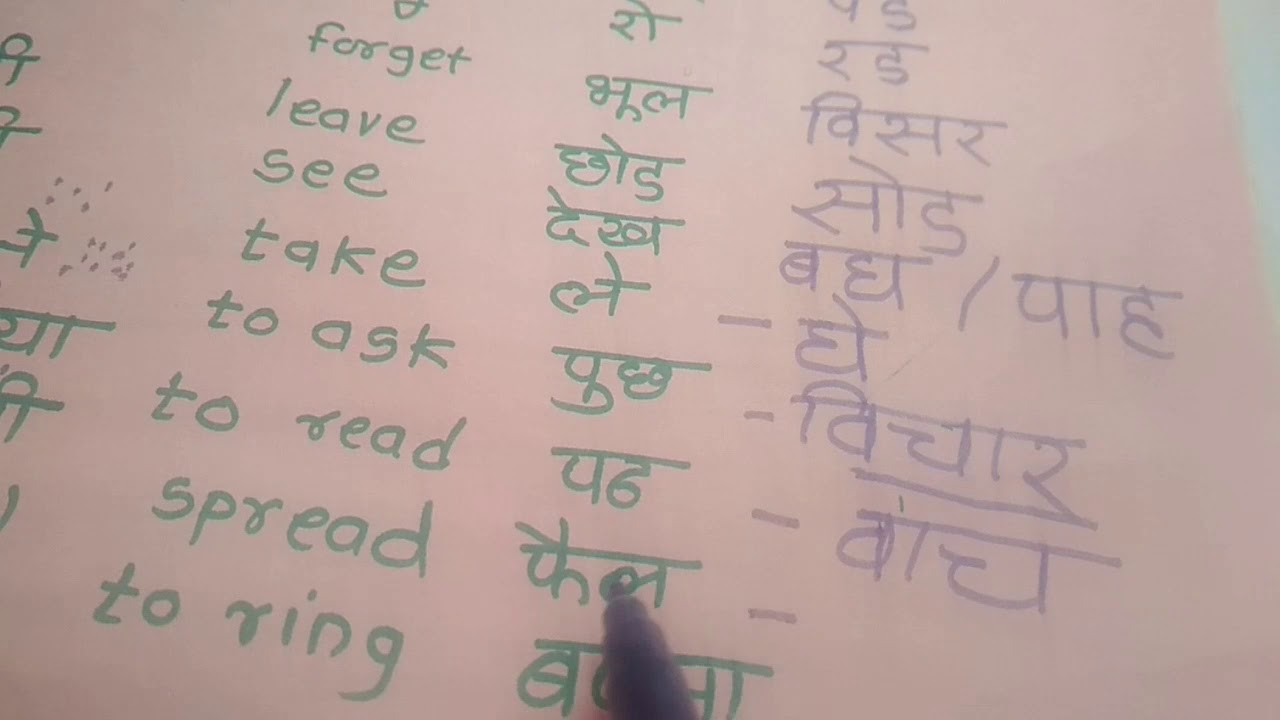 रो रड
forget भूल विसर
leave छोड सोड
see देख बघ / पाह
take ले - घे
to ask पुछ - विचार
to read पढ - वाच
spread फैल -
to ring